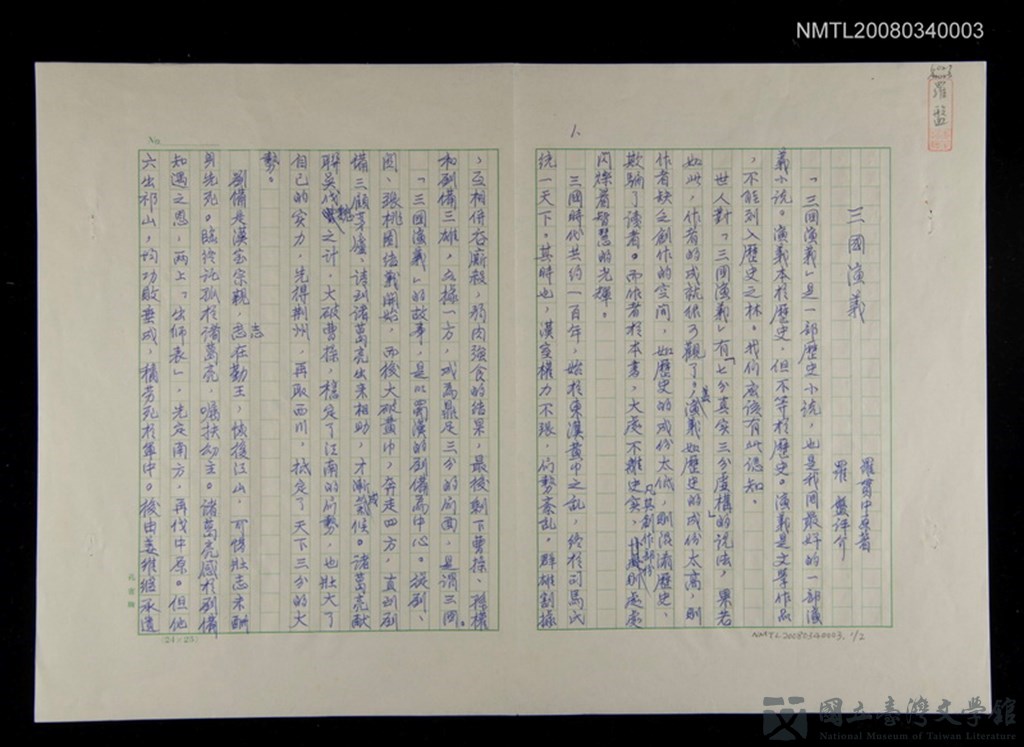 NMTL20080340003
羅盤
1.
三國演義
羅貫中原著
羅盤評介
「三国演義」是一部歷史小説，也是我国最好的一部演
義小説。演義本於歷史，但不等於歷史。演義是文學作品
，不能列入歷史之林。我們应該有此認知。
世人對「三国演義」有「七分真实三分虛構」的説法，果若
如此，作者的成就很可觀了。蓋演義如歷史的成份太高，則
作者缺乏創作的空间，如歷史的成份太低，則設淆歷史、
欺騙了讀者。而作者於本書，大處不離史实、凡其創作部份則處處
闪爍着智慧的光輝。
三国時代共约一百年，始於東漢黄巾之乱，终於司馬氏
统一天下。其時也，漢室權力不張，局势紊乱。群雄割據
，互相併吞廝殺，弱肉強食的结果，最後剩下曹操、孫權
和劉備三雄，各據一方，成為鼎足三分的局面，是谓三国。
「三国演義」的故事，是以蜀漢的劉備為中心。從劉、
関、張桃園结義開始，而後大破黄巾，奔走四方，直到劉
備三顧茅廬、請到諸葛亮出来相助，才漸成氣候。諸葛亮献
聯吴伐魏之计，大破曹操，穩定了江南的局勢，也壯大了
自己的实力，先得荆州，再取西川，抵定了天下三分的大
勢。
劉備是漢室宗親，志在勤王，恢復江山，可惜壯志未酬
身先死。臨终託孤於諸葛亮，嘱扶幼主。諸葛亮感於劉備
知遇之恩，両上「出師表」，先定南方，再伐中原。但他
六出祁山，均功敗垂成，積劳死於軍中。後由姜维继承遗
No.
(24×25)
NMTL20080340003, 1/2
國立臺灣文學館
National Museum of Taiwan Literature